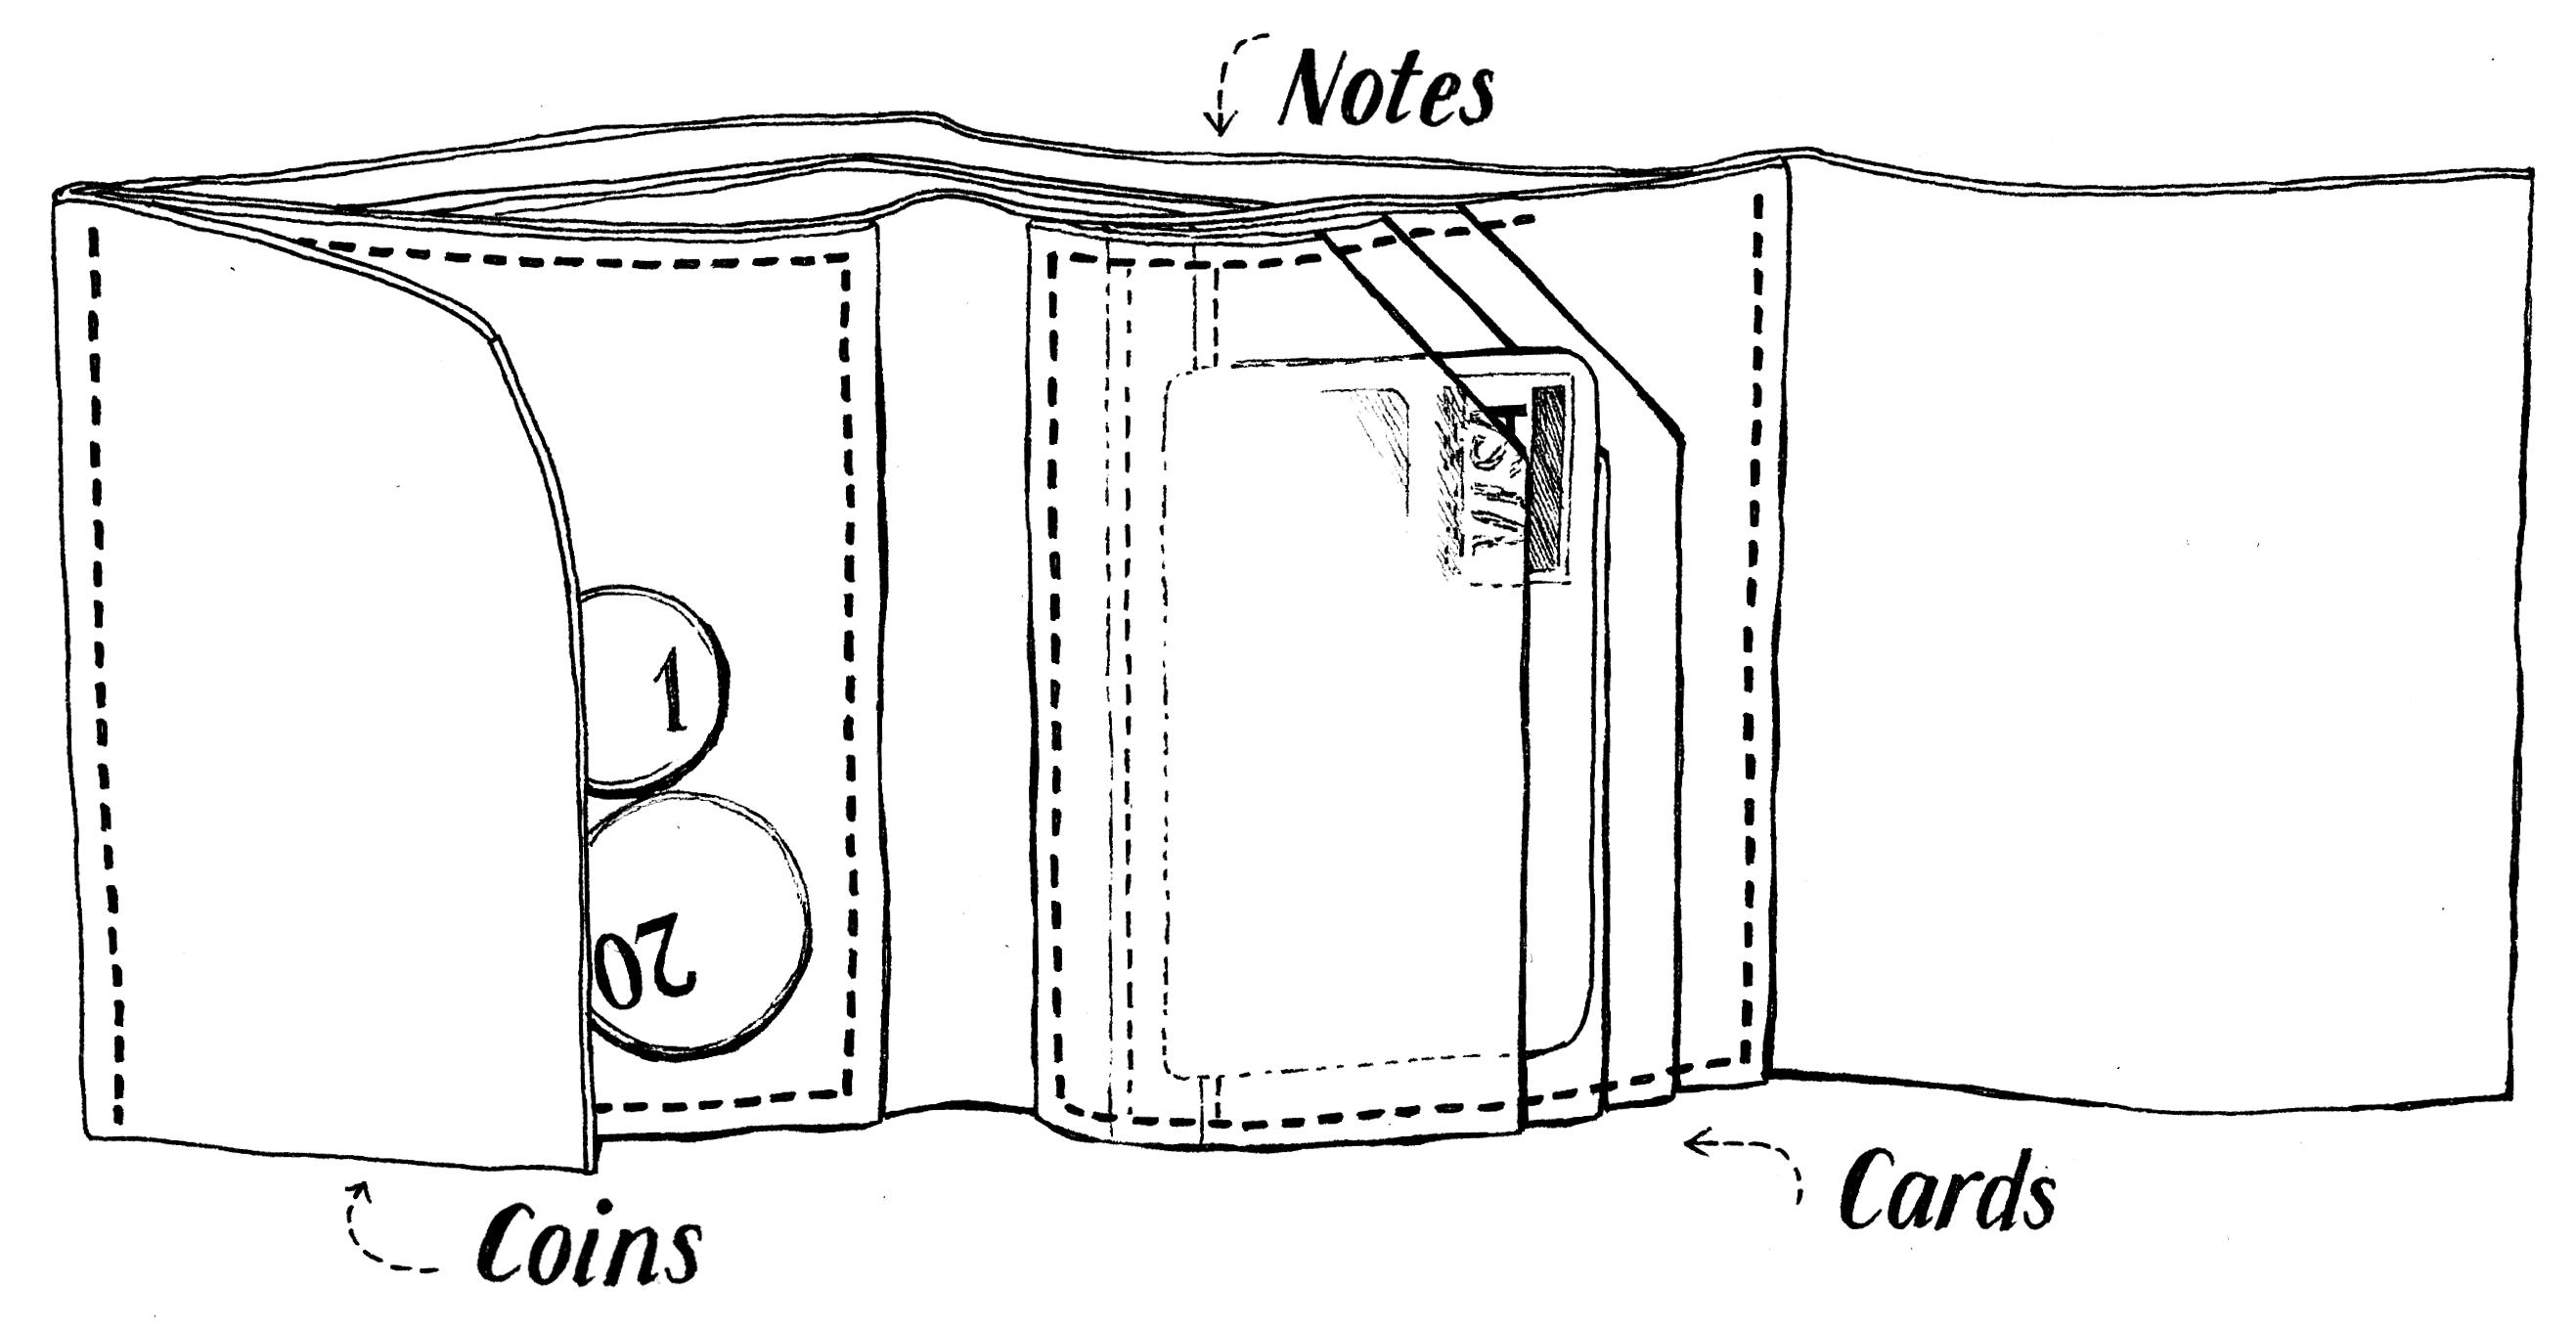 Notes
VISA
1
20
Cards
Coins